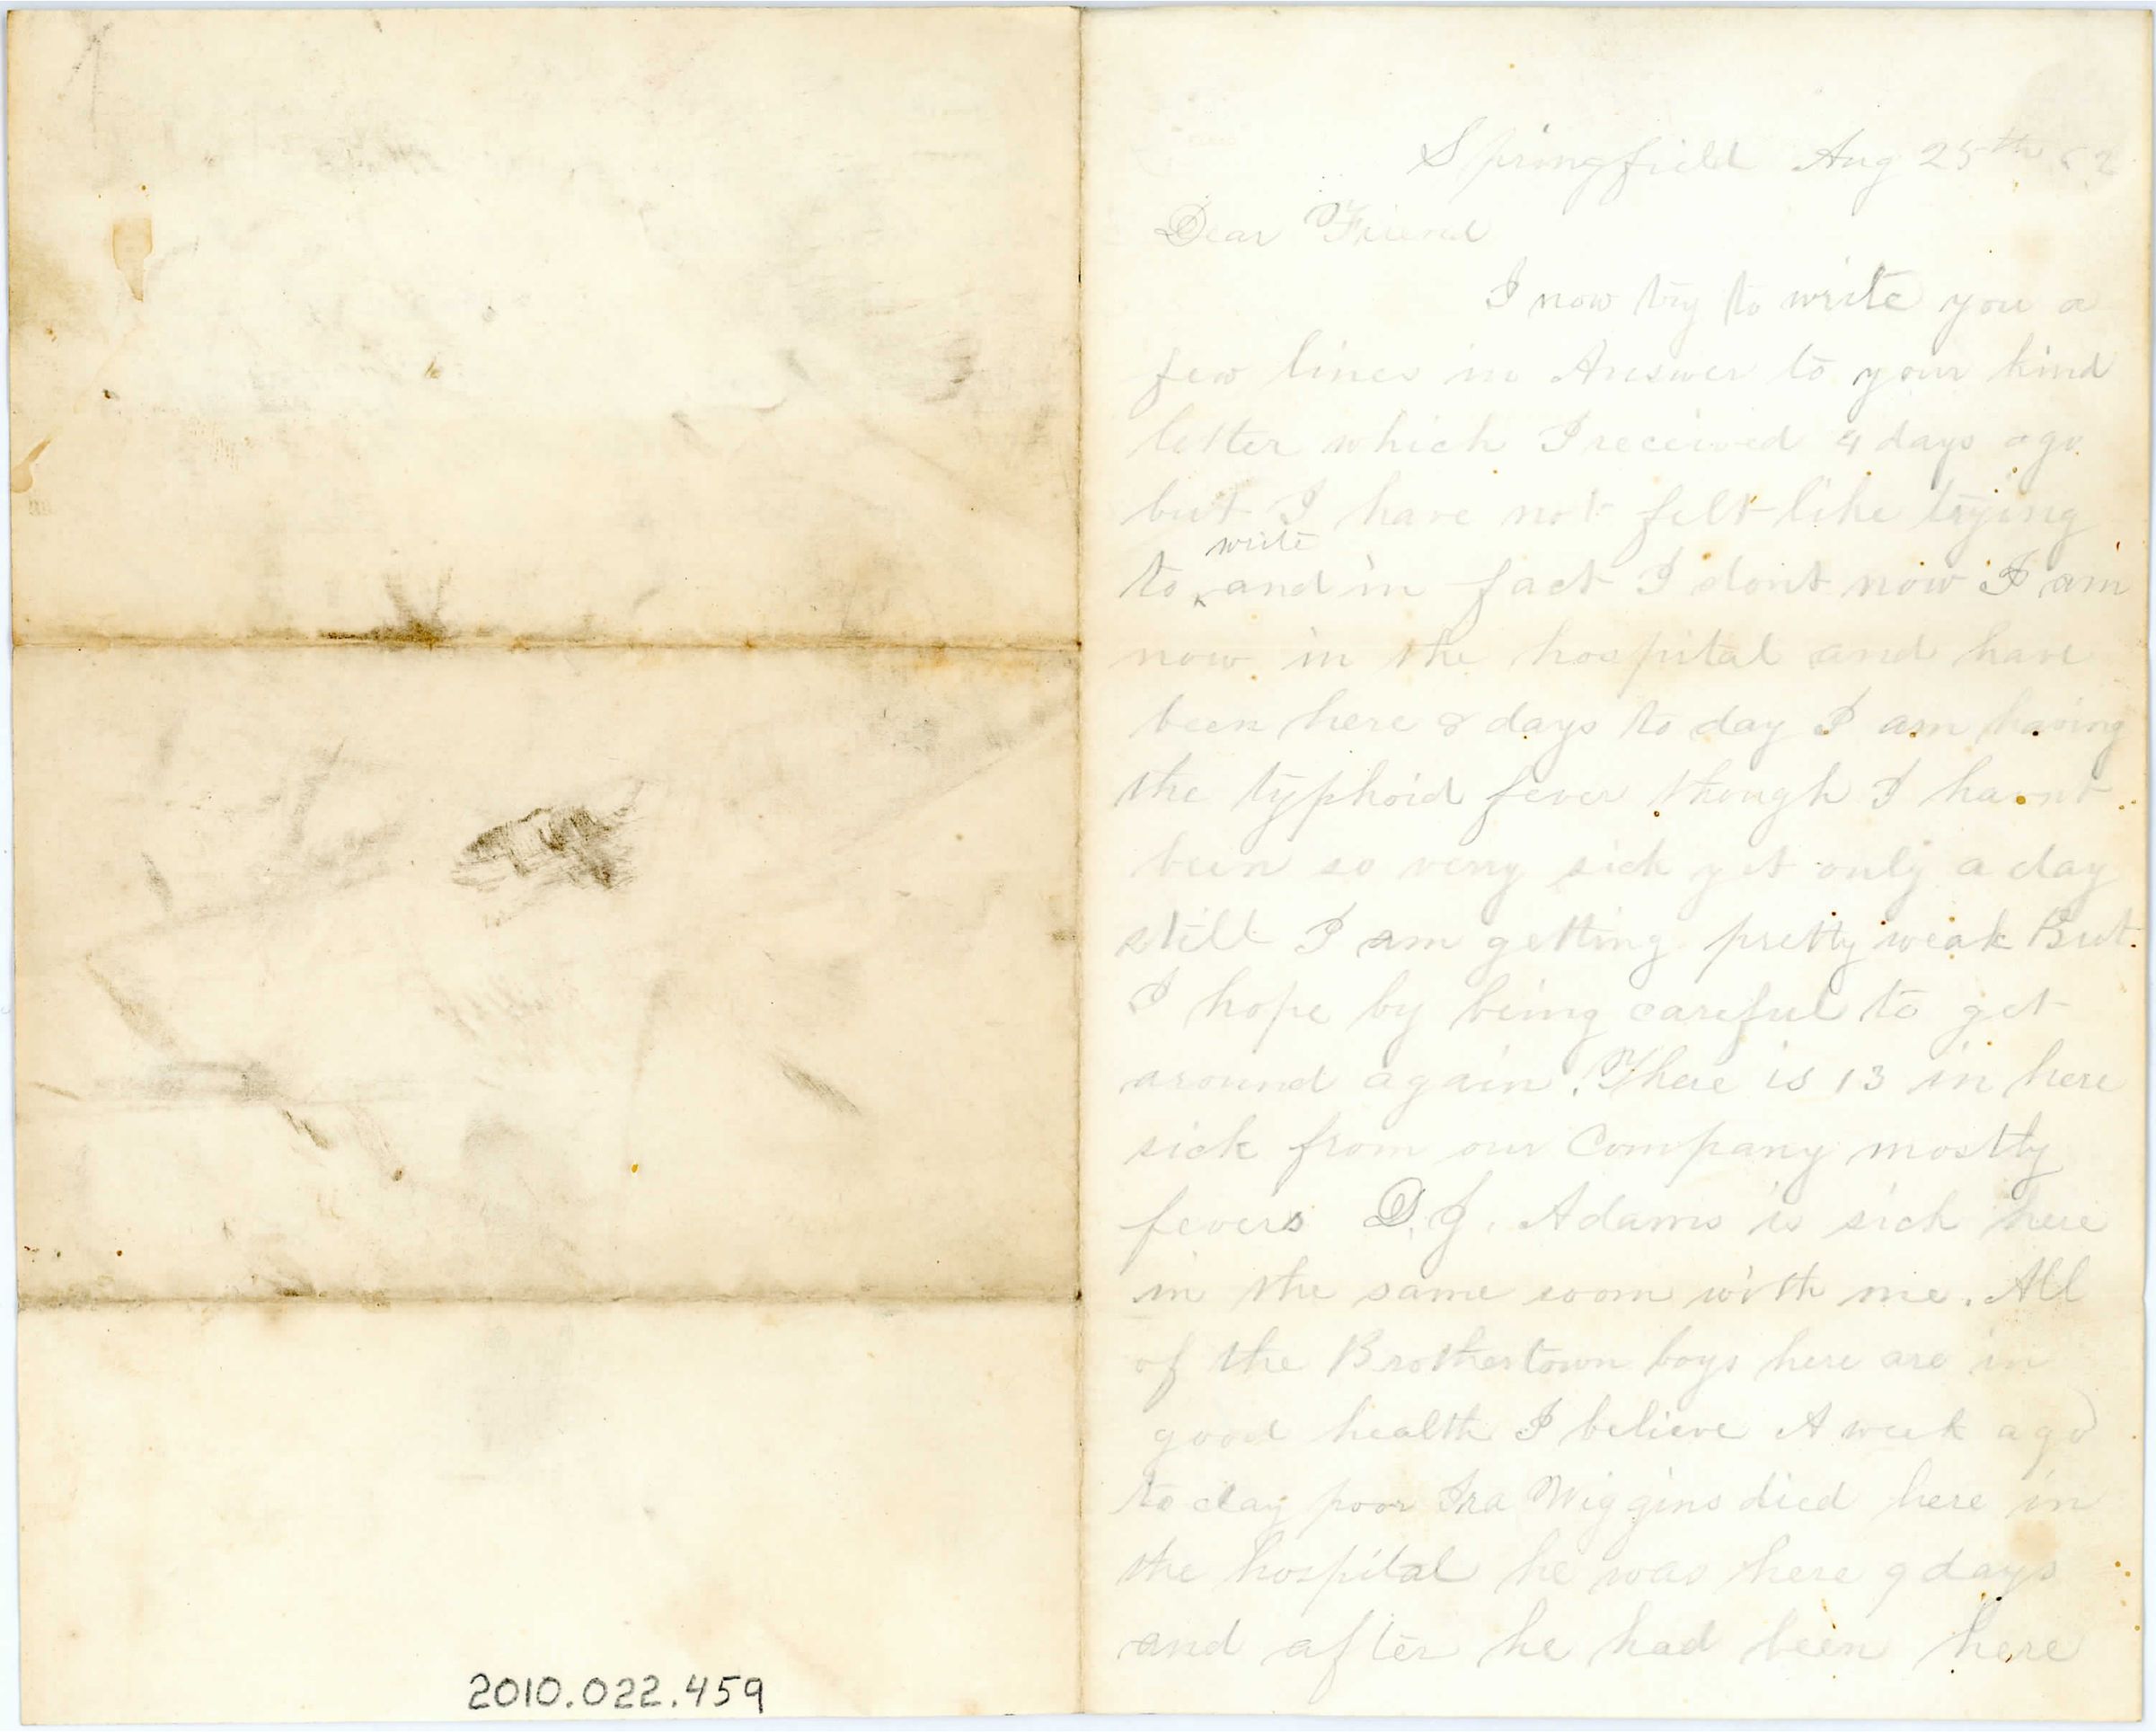 2010.022.459
Springfield Aug 25th 62
Dear Friend
I now try to write you a
few lines in Answer to your kind
letter which I received 4 days ago
but I have not felt like trying
to write and in fact I dont now I am
now in the hospital and have
been here 8 days to day I am having
the typhoid fever though I havnt
been so very sick yet only a day
still I am getting pretty weak But
I hope by being careful to get
around again. There is 13 in here
sick from our Company mostly
fevers D. J. Adams is sick here
in the same room with me. All
of the Brothertown boys here are in
good health I believe A week ago
to day poor Ira Wiggins died here in
the hospital he was here 9 days
and after he had been here